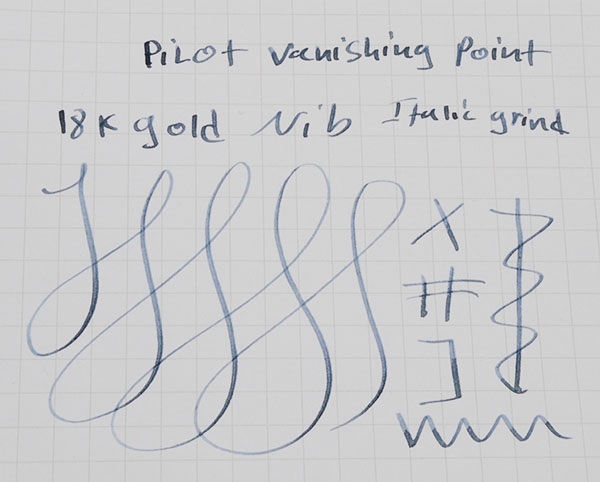 Pilot Vanishing Point
18K gold Nib Italic grind